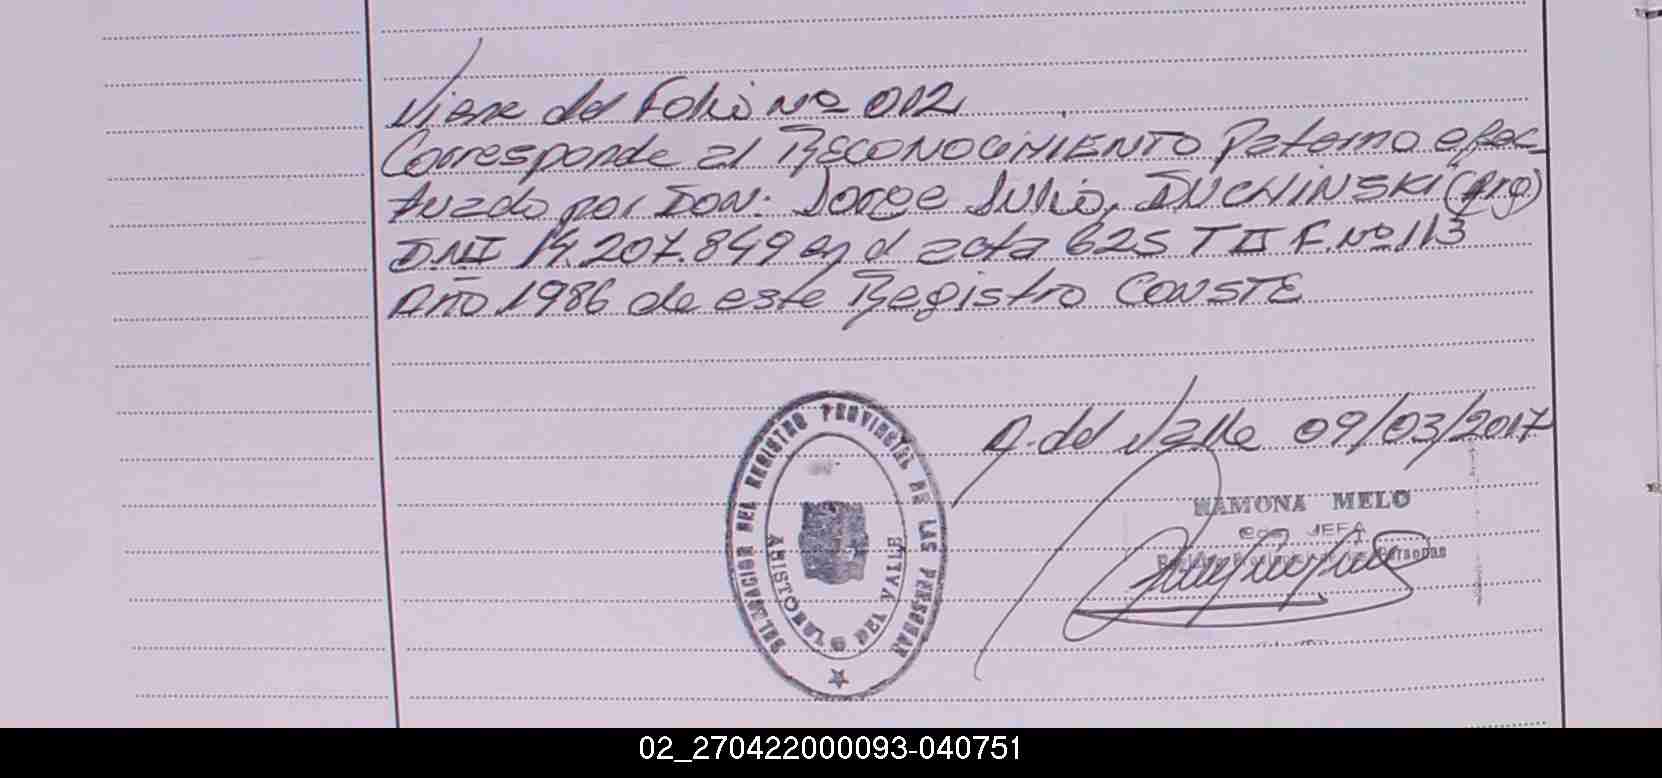 Viene del Folio Nº 012
Corresponde al RECONOCIMIENTO Paterno efec_
tuado por DON: Jorge Julio, DUCHINSKI (Arg)
D.N.I 14.207.849 en el acta 625 T II F.Nº 113
Año 1986 de este Registro CONSTE
A. del Valle 09/03/2017
DELEGACION DEL REGISTRO PROVINCIAL DE LAS PERSONAS
ARISTOBULO DEL VALLE
RAMONA MELO
JEFA
Registro Provincial de las Personas
02_270422000093-040751